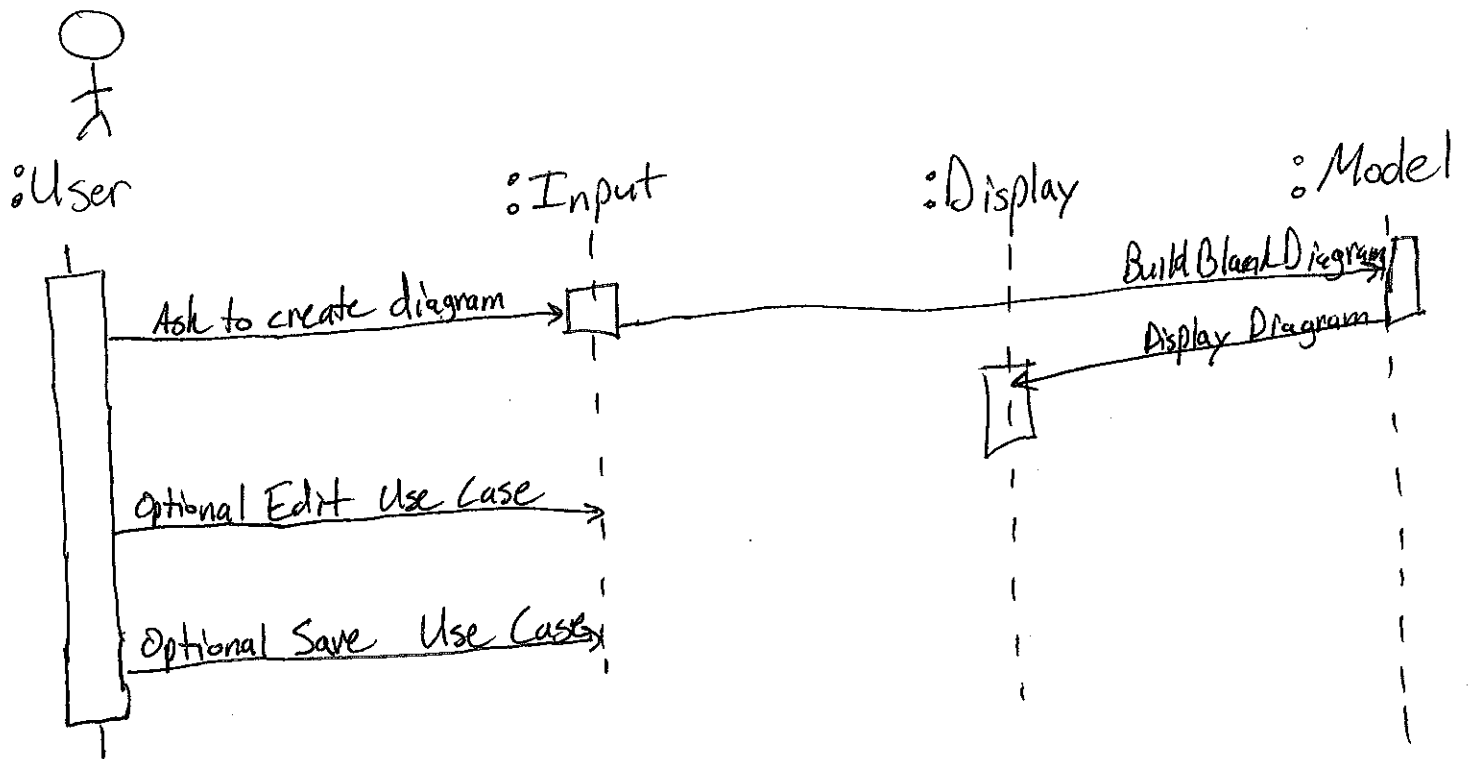 :User
:Input
:Display
:Model
Build Blank Diagram
Ask to create diagram
Display Diagram
Optional Edit Use Case
Optional Save Use Case